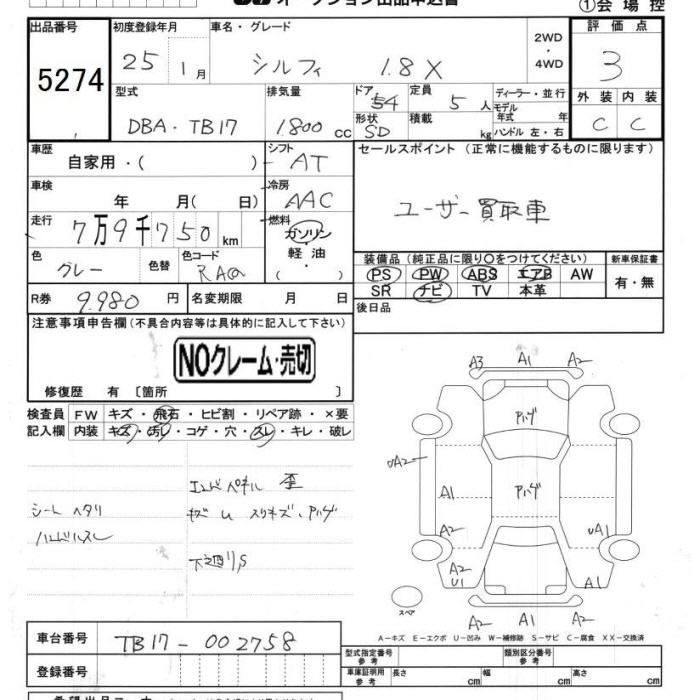 オークション出品申込書
①会場控
出品番号 初度登録年月 車名・グレード 評価点
5274 25年 1月 シルフィ 1.8X 2WD・4WD 3
型式 排気量 ドア 54 定員 5人 ディーラー・並行 外装 内装
DBA・TB17 1.800cc 形状 SD 積載 kg モデル年式 年 ハンドル 左・右 C C
車歴 自家用・( ) シフト AT
セールスポイント(正常に機能するものに限ります)
車検 年 月( 日) 冷房 AAC
ユーザー買取車
走行 7万9千750km 燃料 ガソリン・軽油・( )
色 グレー 色替 色コード RAQ
装備品(純正品に限り○をつけてください) 新車保証書
PS PW ABS エアB AW 有・無
SR ナビ TV 本革
R券 9.980円 名変期限 月 日 後日品
注意事項申告欄(不具合内容等は具体的に記入して下さい)
NOクレーム・売切
修復歴 有〔箇所 〕
検査員 FW キズ・飛石・ヒビ割・リペア跡・×要
記入欄 内装 キズ・汚レ・コゲ・穴・スレ・キレ・破レ
シート ヘタリ
ハンドルスレ
エンドパネル 歪
キズ U スリキズ・アハゲ
下廻りS
A3 A1 A2
アハゲ
UA2
A1 アハゲ
A2 UA1
A2 U1 A1
スペア
A2 A1 A2
A-キズ E-エクボ U-凹み W-補修跡 S-サビ C-腐食 XX-交換済
車台番号 TB17-002758
型式指定番号 参考 類別区分番号 参考
登録番号 車庫証明用 参考 長さ cm 幅 cm 高さ cm
希望出品コーナー